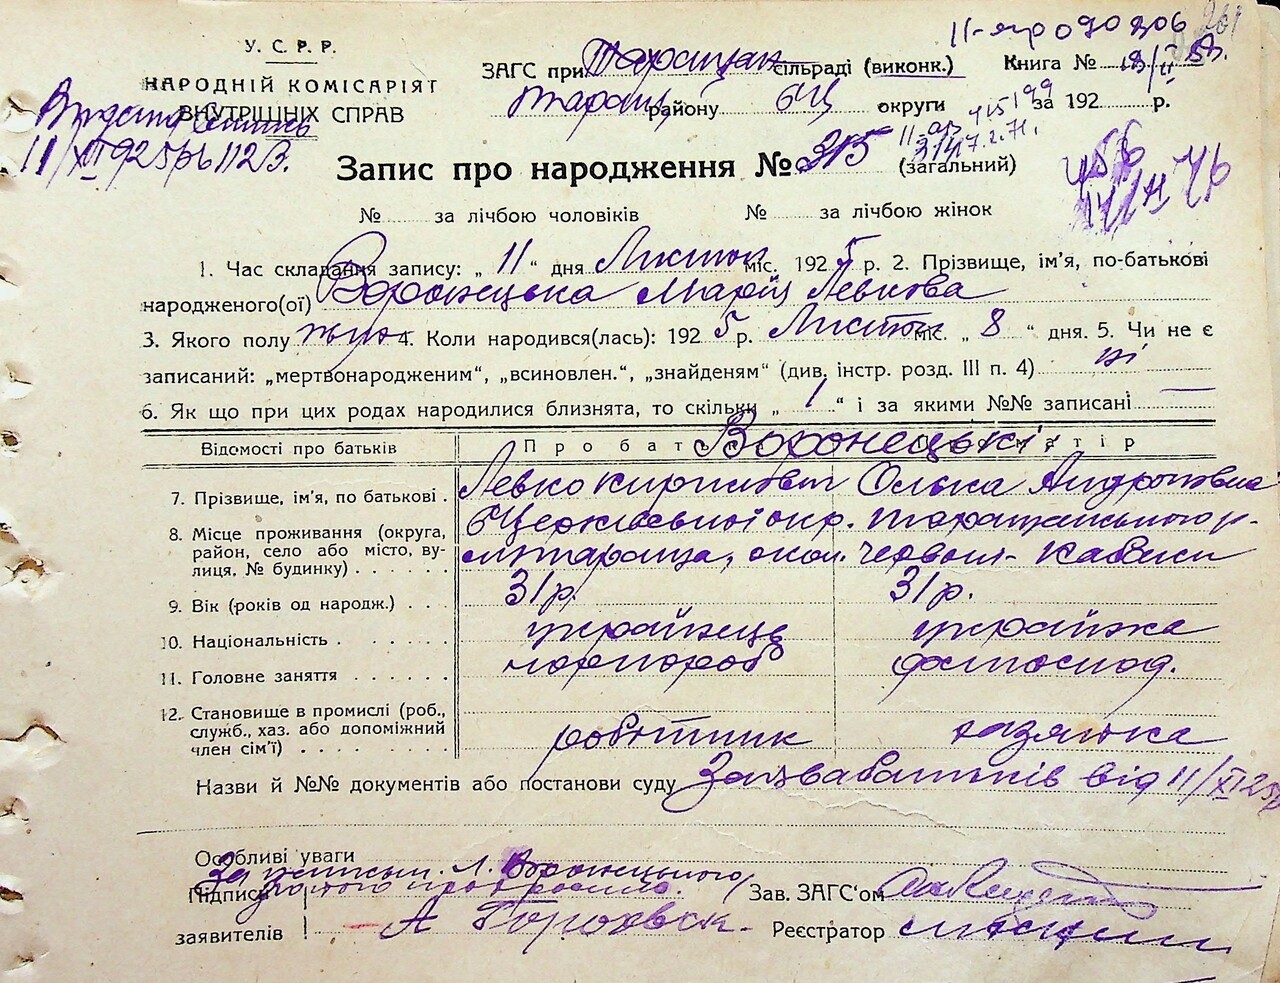 11-яр 090206
261
У. С. Р. Р.
НАРОДНІЙ КОМІСАРІЯТ
ВНУТРІШНІХ СПРАВ
ЗАГС при Таращан сільраді (виконк.) Книга №
Таращ району БЦ округи за 192 р.
11/XII 925р № 1123.
Запис про народження № 315 (загальний)
№ за лічбою чоловіків № за лічбою жінок
1. Час складання запису: „ 11 “ дня Листоп міс. 192 5 р. 2. Прізвище, ім'я, по-батькові
народженого(ої) Воронецька Марія Левкова
3. Якого полу жін 4. Коли народився(лась): 192 5 р. Листоп міс. „ 8 “ дня. 5. Чи не є
записаний: „мертвонародженим“, „всиновлен.“, „знайденям“ (див. інстр. розд. III п. 4) ні
6. Як що при цих родах народилися близнята, то скільки „ 1 “ і за якими №№ записані —
Відомості про батьків Про батька Воронецькі Про матір
7. Прізвище, ім'я, по батькові . Левко Кирилович Олька Андроновна
8. Місце проживання (округа, район, село або місто, вулиця, № будинку) . . . . . БЦерківської окр. Таращанського р.
м Тараща, окол. Червон. Кавкази
9. Вік (років од народж.) . . . 31 р. 31 р.
10. Національність . . . . . українець українка
11. Головне заняття . . . . . . чорнороб домгоспод.
12. Становище в промислі (роб., служб., хаз. або допоміжний член сім'ї) . . . . . . . робітник хазяйка
Назви й №№ документів або постанови суду Заява батьків від 11/XI 25р
Особливі уваги
За неписьм. Л. Воронецького,
Підписи
заявителів А Гороховськ.
Зав. ЗАГС'ом
Реєстратор